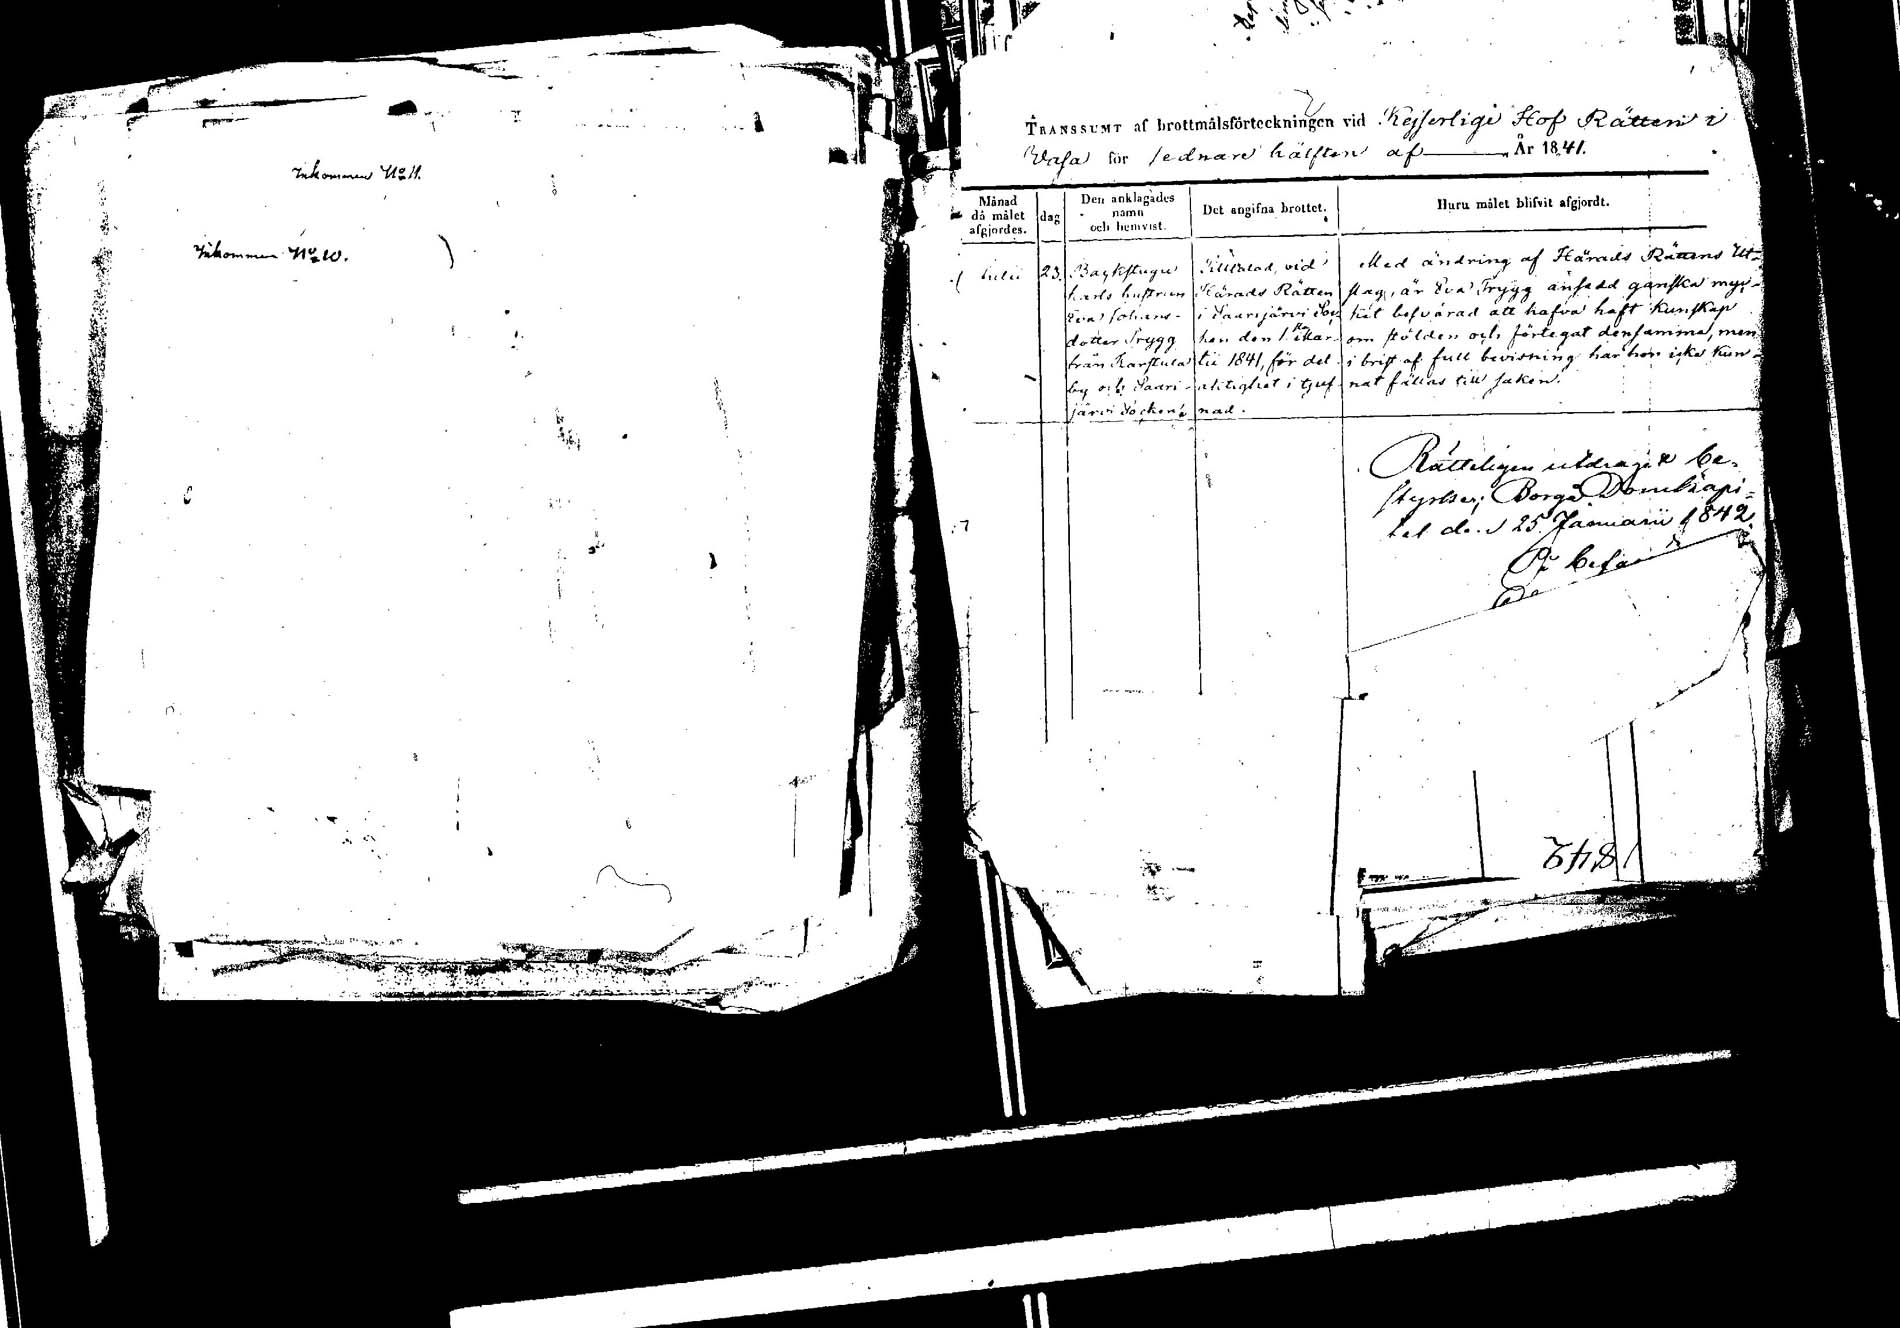 Inkommen No 11.
Inkommen No 10.
TRANSSUMT af brottmålsförteckningen vid Kejserlige Hof Rätten i
Wasa för sednare hälften af År 1841.
Månad
då målet
afgjordes.
dag
Den anklagades
namn
och hemvist.
Det angifna brottet.
Huru målet blifvit afgjordt.
Julii
23.
Backstugu
karls hustrun
Eva Johans-
dotter Trygg
från Karstula
by och Saari-
järvi Socken.
Tilltalad, vid
Härads Rätten
i Saarijärvi Soc-
ken den 1 Mar-
tii 1841, för del-
aktighet i tjuf-
nad.
Med ändring af Härads Rättens Ut-
slag, är Eva Trygg ansedd ganska myc-
ket besvärad att hafva haft kunskap
om stölden och förtegat densamma, men
i brist af full bevisning har hon icke kun-
nat fällas till saken.
Rätteligen utdraget be-
styrker; Borgå Domkapi-
tel den 25 Januarii 1842.
1842